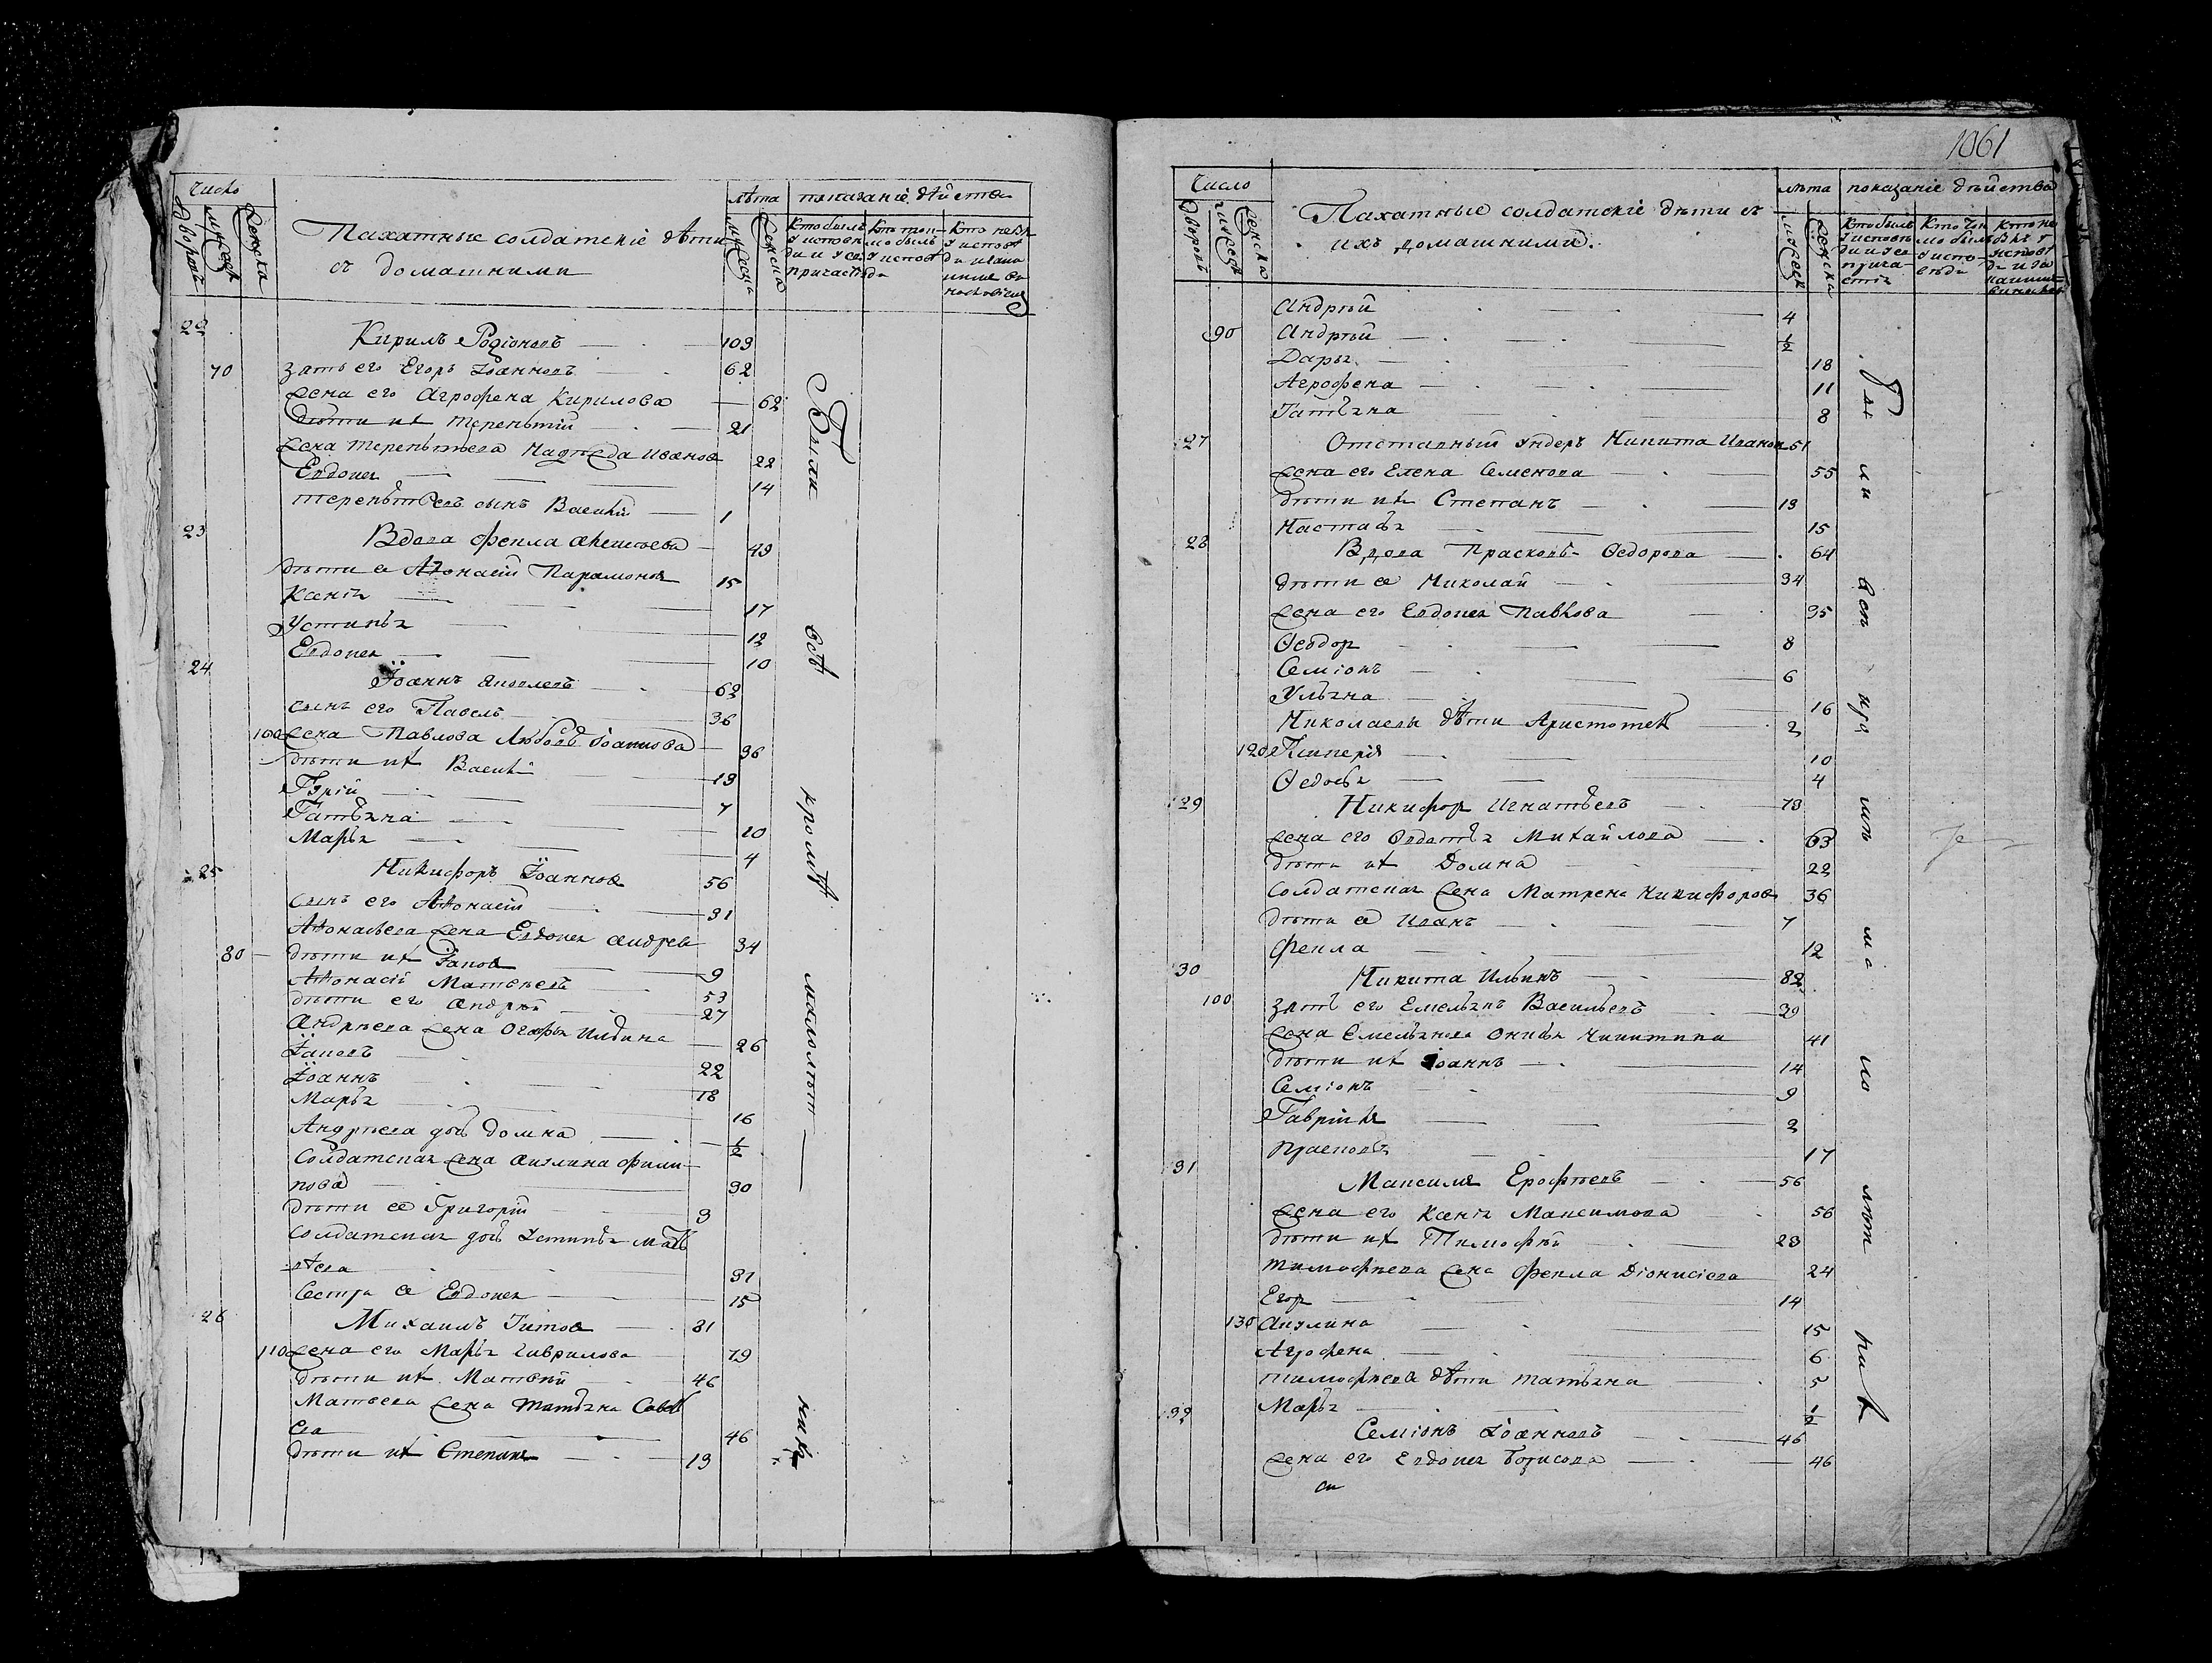 Число
Дворовъ
мужеск
женска
Пахатные солдатскіе дѣти
съ домашними
лѣта
мужеска
женска
показаніе дѣйства
кто былъ у исповѣди и у св. причастія
кто то былъ у исповѣди
кто не былъ у исповѣди
22 Кирилъ Родіоновъ 109
70 зять его Егоръ Іоанновъ 62
жена его Агрофена Кирилова 62
дѣти их Терентій 21
жена Терентьева Надежда Иванов 22
Евдокея 14
Терентьевъ сынъ Василій 1
23 Вдова Фекла 49
дѣти ее Афонасій Парамоновъ 15
Ксенія 17
Устинья 12
Евдокея 10
24 Іоаннъ Яковлевъ 62
сынъ его Павелъ 36
100 жена Павлова Любовь Іоаннова 36
дѣти их Василій 13
Гурій 7
Татьяна 10
Марья 4
25 Никифоръ Іоаннов 56
сынъ его Афонасій 31
Афонасьева жена Евдокея Андрев 34
80 дѣти их Іаков 9
Афонасій Матвеевъ 53
дѣти его Андрѣй 27
Андрѣева жена Огафья Ильина 26
Іаковъ 22
Іоаннъ 18
Марья 16
Андрѣева дочь Домна 1/2
Солдатская жена Акулина Фили-
пова 30
дѣти ее Григорій 3
Солдатская дочь Устинья Матв
ѣева 31
Сестра ее Евдокея 15
26 Михаилъ Титов 81
110 жена его Марья Гаврилова 79
дѣти их Матвѣй 46
Матвева жена Татьяна Савель
ева 46
дѣти их Степанъ 13
Были всѣ кромѣ малолѣт нихъ
1061
Число
Дворовъ
мужеск
женска
Пахатные солдатскіе дѣти съ
ихъ домашними.
лѣта
мужеск
женска
показаніе дѣйства
кто былъ у исповѣди и у св. прича-стія
Андрѣй 4
90 Андрѣй 1/2
Дарья 18
Агрофена 11
Татьяна 8
27 Отставный ундеръ Никита Иванов 61
жена его Елена Семенова 55
дѣти их Степанъ 13
Настасья 15
28 Вдова Прасковь Ѳедорова 64
дѣти ее Николай 34
жена его Евдокея Павлова 35
Ѳеодор 8
Семіонъ 6
Ульяна 16
Николаевы дѣти Аристотел 2
120 Гликерія 10
Ѳедосья 4
29 Никифор Игнатьевъ 73
жена его Овдотья Михайлова 63
дѣти их Домна 22
Солдатская жена Матрена Никифоров 36
дѣти ее Иванъ 7
Фекла 12
30 Никита Ильинъ 82
100 зять его Емельянъ Васильевъ 39
жена Емельянова Никитина 41
дѣти их Іоаннъ 14
Семіонъ 9
Гавріилъ 2
Прасковья 17
31 Максимъ Ерофѣевъ 56
жена его Ксенія Максимова 56
дѣти их Тимофѣй 23
Тимофѣева жена Фекла Діонисіева 24
Егор 14
130 Акулина 15
Агрофена 6
Тимофѣева дѣти Татьяна 5
Марья 1/2
32 Семіонъ Іоанновъ 46
жена его Евдокея Борисова 46
Были всѣ кромѣ малолѣт них